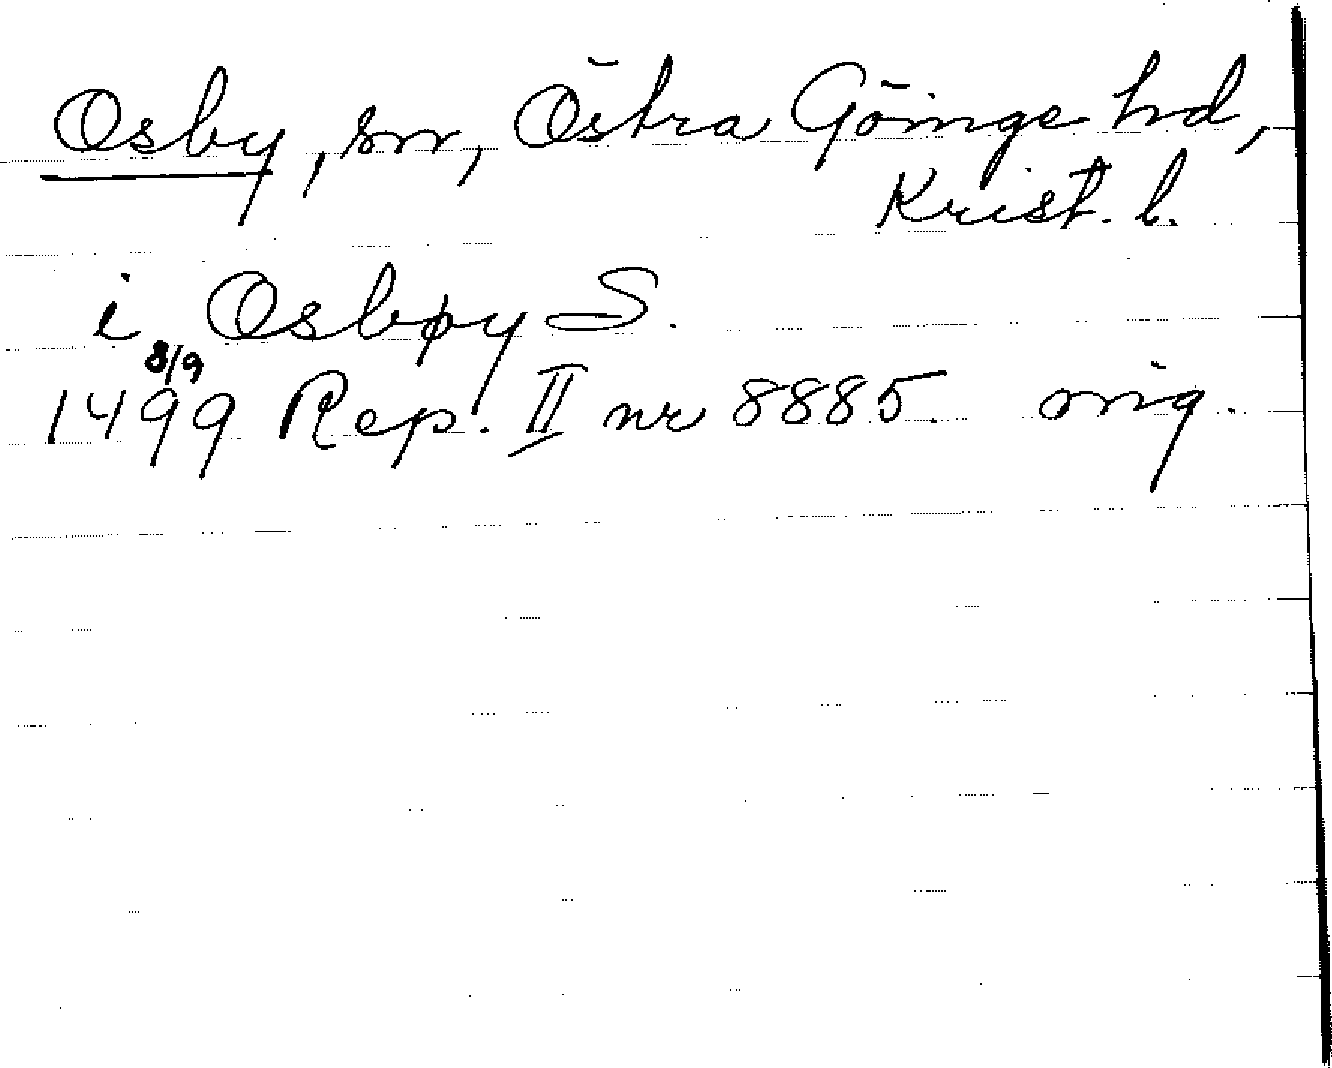 Osby, sn, Östra Göinge hd,
Krist. l.
i Osbøy S.
8/9
1499 Rep. II nr 8885 orig.